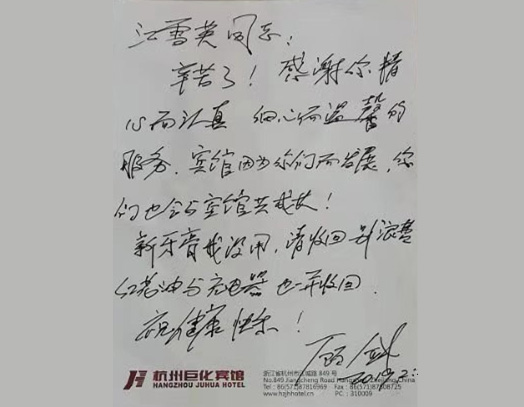 江雪英同志：
辛苦了！感谢你精
心而认真 细心而温馨的
服务，宾馆因为你们而发展，你
们也会与宾馆共成长！
新牙膏我没用，请收回别浪费
红花油与充电器也一并收回．
祝健康快乐！
杭州巨化宾馆
HANGZHOU JUHUA HOTEL
浙江省杭州市江城路 849 号
No.849 Jiangcheng Road Hangzhou Zhejiang China
www.hzjhhotel.cn PC：310009